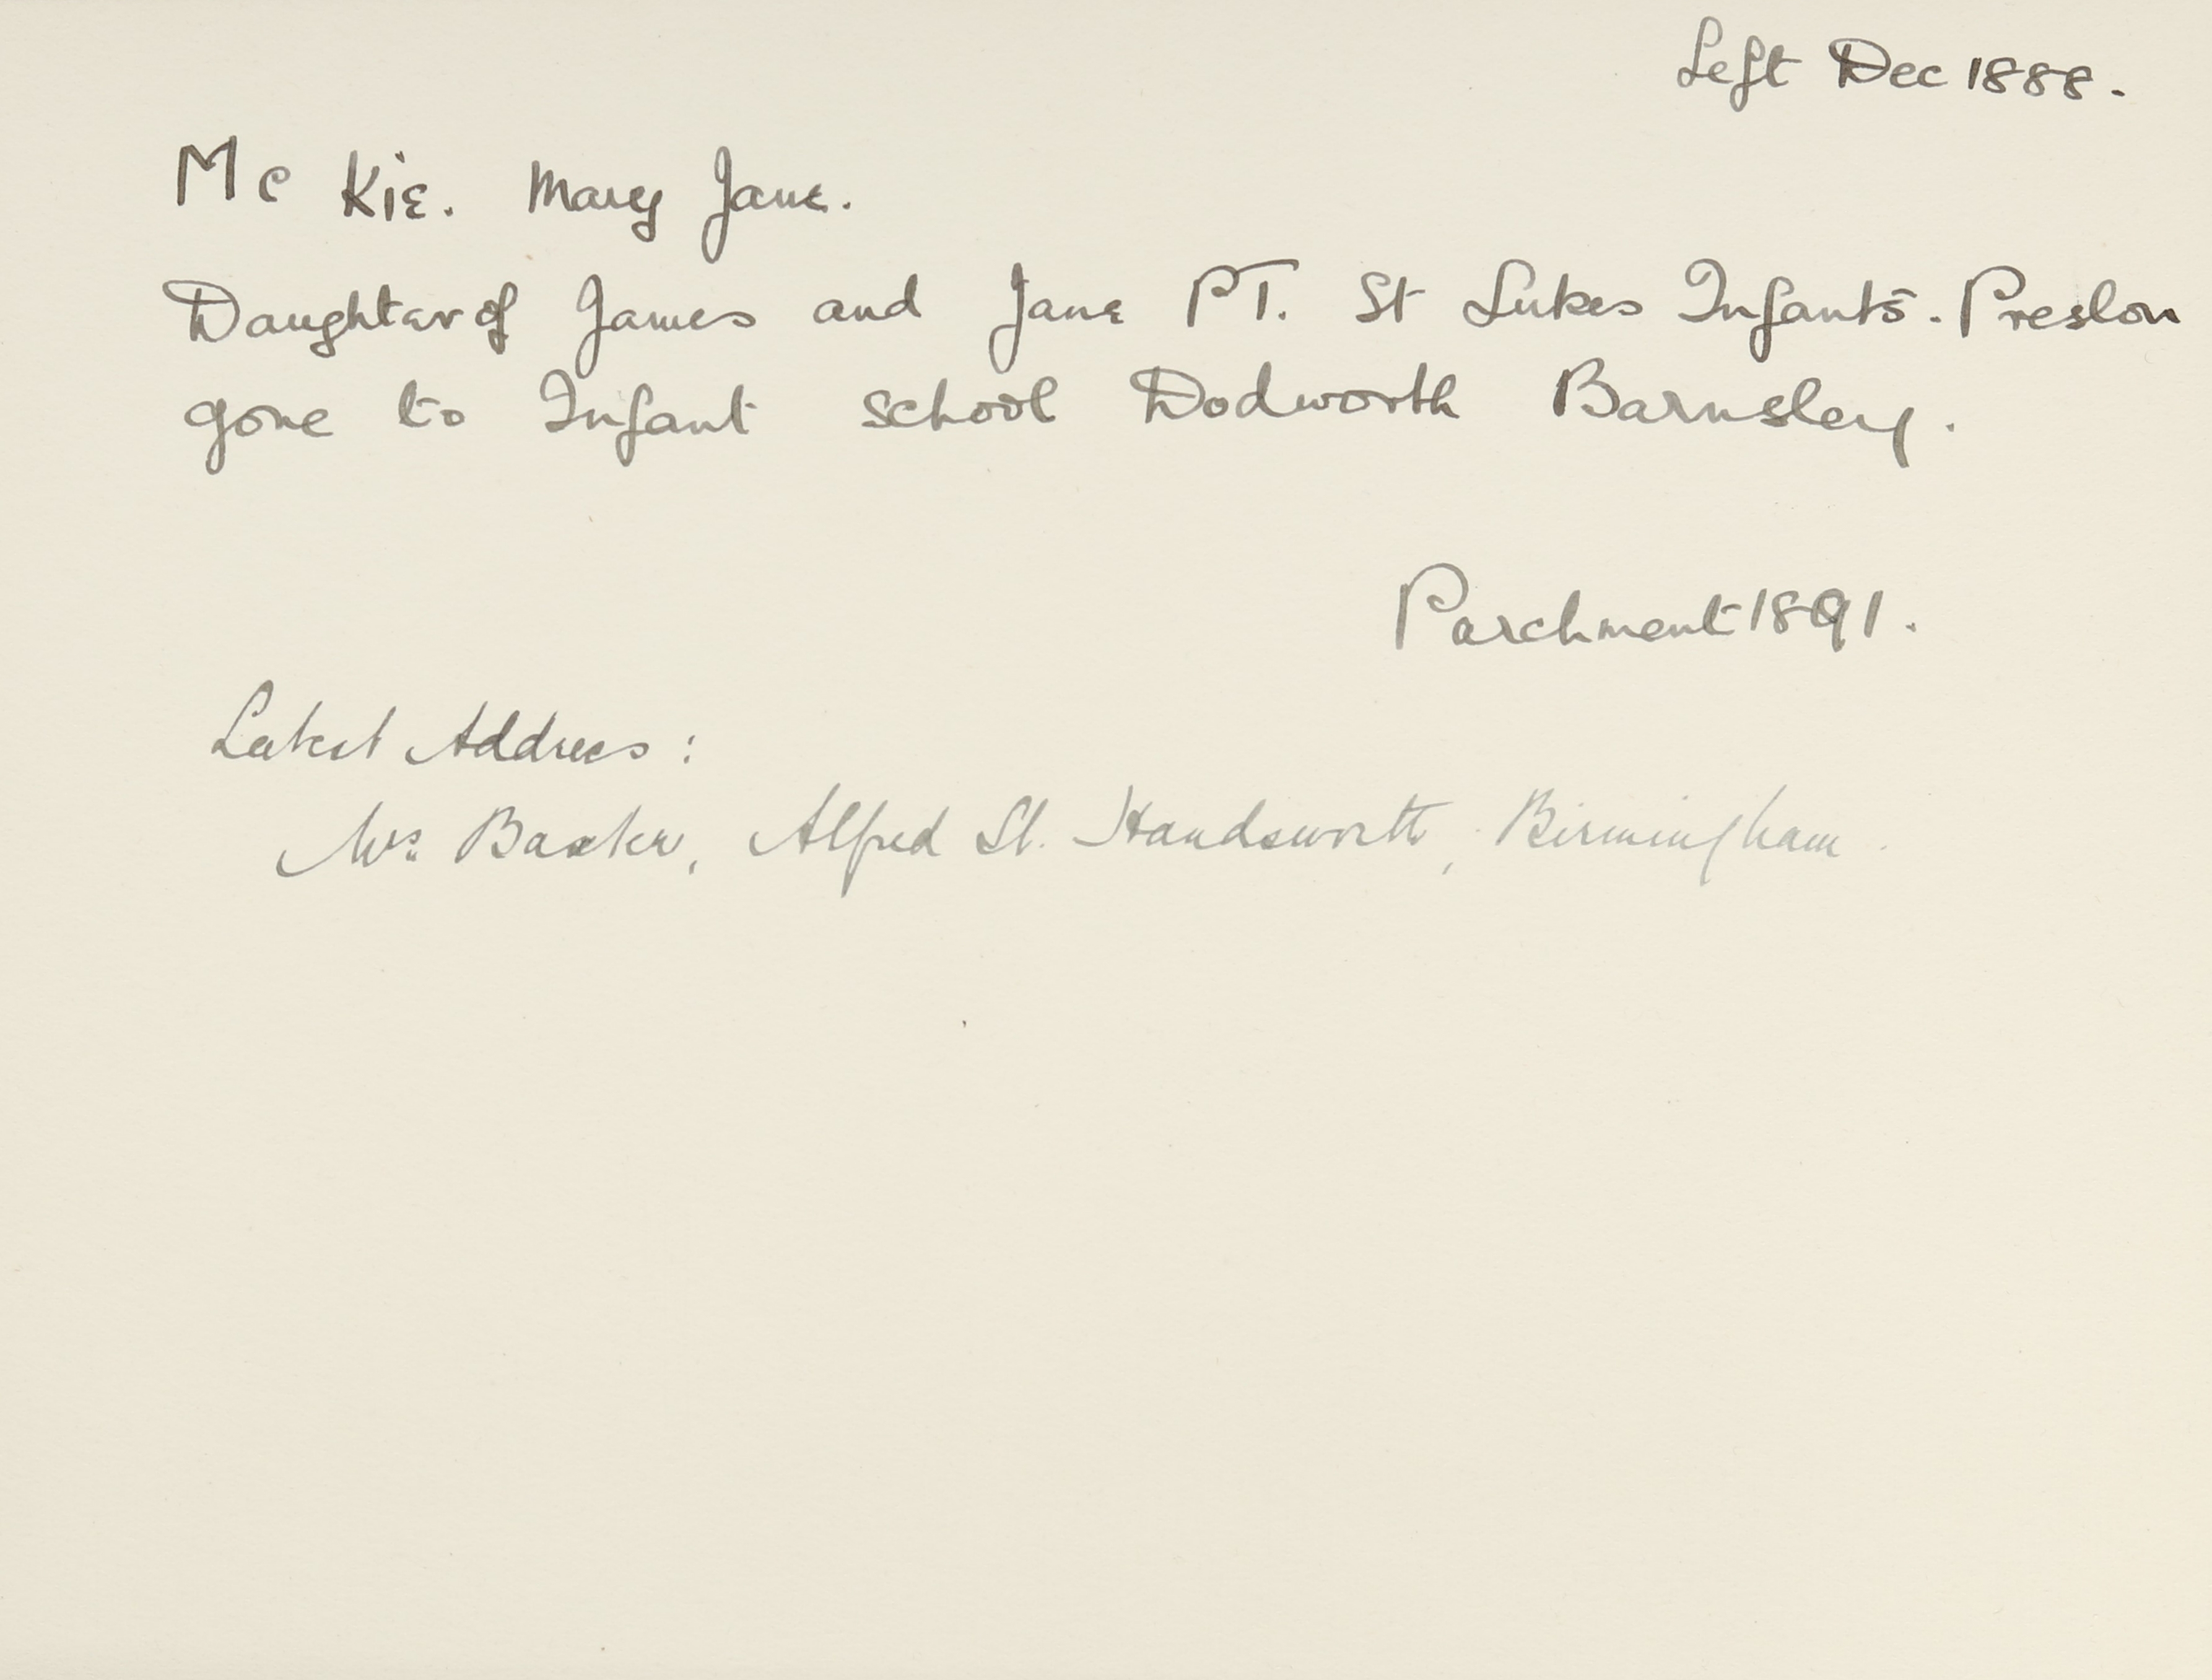 Left Dec 1888.
Mc Kie. Mary Jane.
Daughter of James and Jane PT. St Lukes Infants. Preston
gone to Infant school Dodworth Barnsley.
Parchment 1891.
Latest Address:
Mrs Baxter, Alfred St. Handsworth, Birmingham.